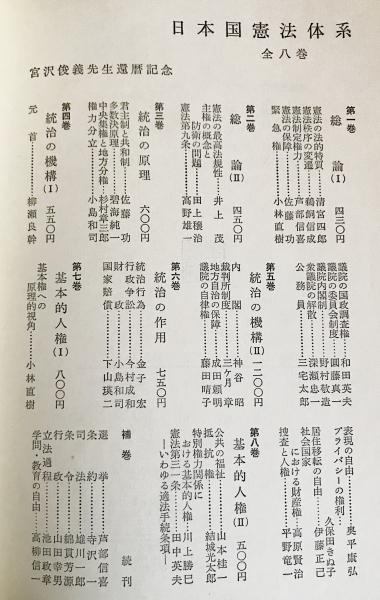 日本国憲法体系
全八巻
宮沢俊義先生還暦記念
第一巻
総論(Ⅰ) 四三〇円
憲法の法的特質……清宮四郎
憲法秩序の変遷……鵜飼信成
憲法制定権力……芦部信喜
憲法の保障……佐藤功
緊急権……小林直樹
第二巻
総論(Ⅱ) 四五〇円
憲法の最高法規性……井上茂
主権の概念と
防衛の問題……田上穣治
憲法第九条……高野雄一
第三巻
統治の原理 六〇〇円
君主制と共和制……佐藤功
多数決原理……碧海純一
中央集権と地方分権……杉村章三郎
権力分立……小島和司
第四巻
統治の機構(Ⅰ) 五五〇円
元首……柳瀬良幹
議院の国政調査権……和田英夫
議院の委員会制度……円藤真一
議院内閣制……野村敬造
衆議院の解散……深瀬忠一
公務員……三宅太郎
第五巻
統治の機構(Ⅱ) 一二〇〇円
内閣……神谷昭
裁判所制度……三ケ月章
地方自治の保障……成田頼明
議院の自律権……藤田晴子
第六巻
統治の作用 七五〇円
統治行為……金子宏
行政争訟……今村成和
財政……小島和司
国家賠償……下山瑛二
第七巻
基本的人権(Ⅰ) 八〇〇円
基本権への
原理的視角……小林直樹
表現の自由……奥平康弘
プライバシーの権利……伊藤正己
居住移転の自由……久保田きぬ子
社会国家
における財産権……高原賢治
捜査と人権……平野竜一
第八巻
基本的人権(Ⅱ) 五〇〇円
公共の福祉……山本桂一
抵抗権……結城光太郎
特別権力関係に
おける基本的人権……川上勝巳
憲法第三一条……田中英夫
―いわゆる適法手続条項―
補巻 続刊
選挙……芦部信喜
条約……寺沢一
司法……雄川一郎
条令……綿貫芳源
行政……山田幸男
立法過程……池田政章
学問・教育の自由……高柳信一